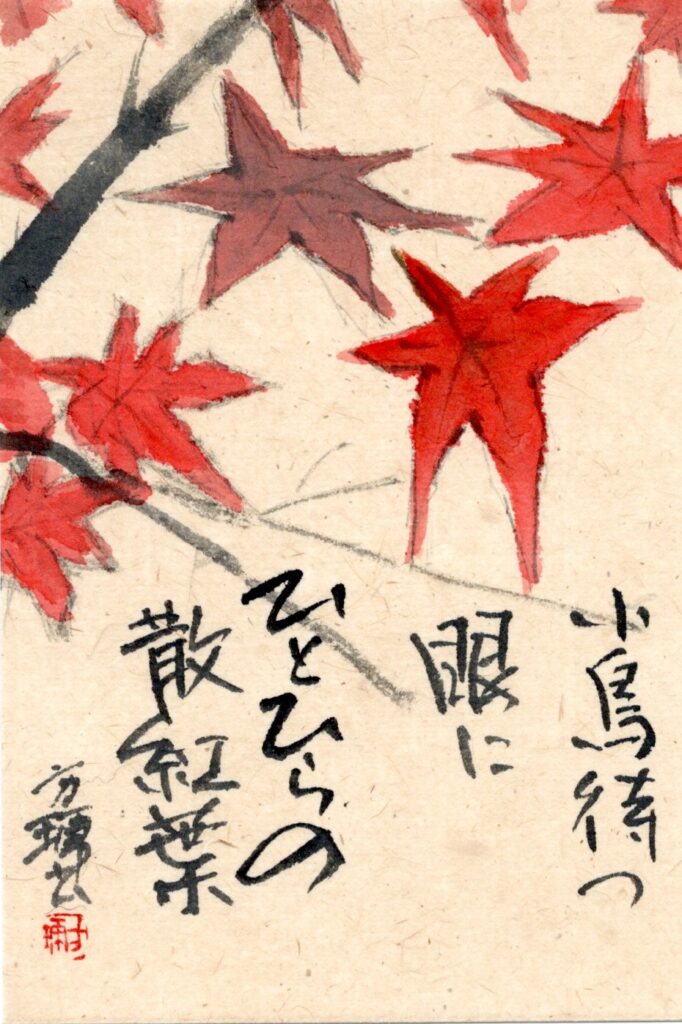 小鳥待つ
眼に
ひとひらの
散紅葉